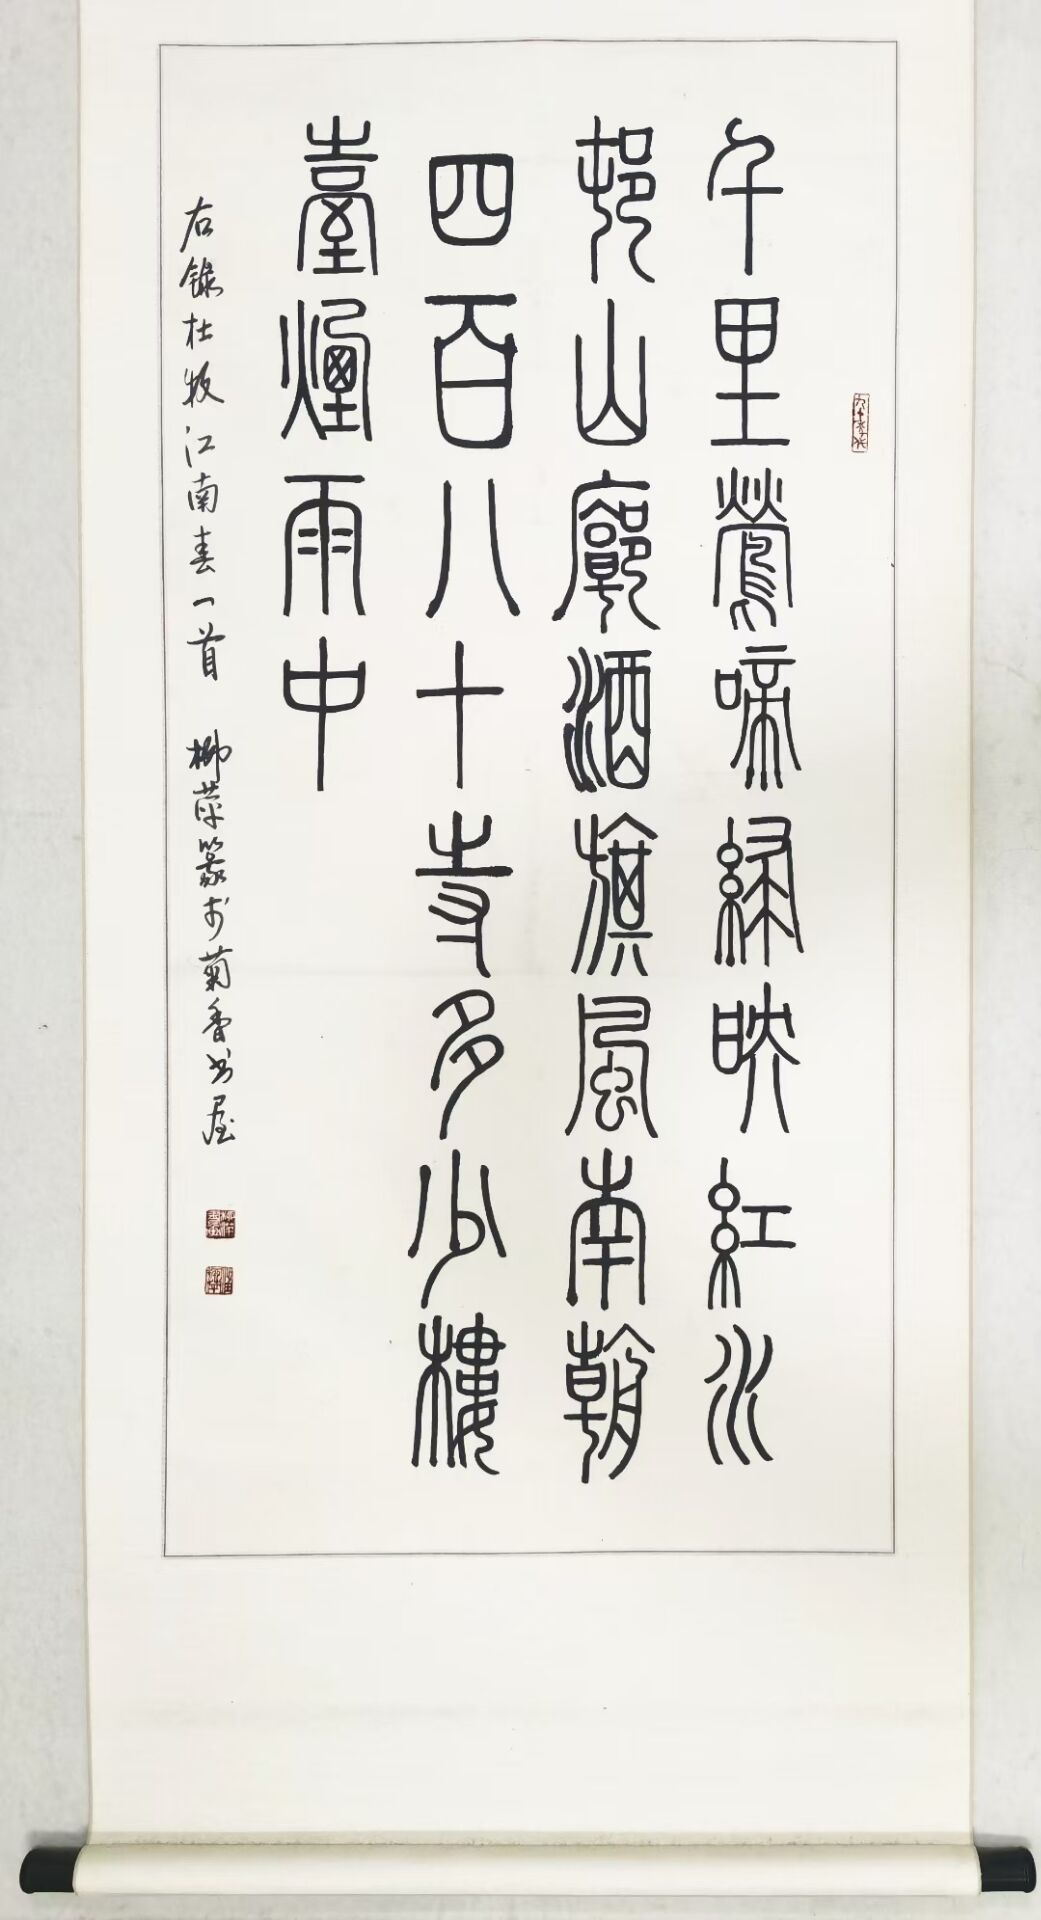 千里鶯啼緑映紅水
邨山廓酒旗風南朝
四百八十寺多少樓
臺煙雨中
右錄杜牧江南春一首 柳萍篆于菊香书屋